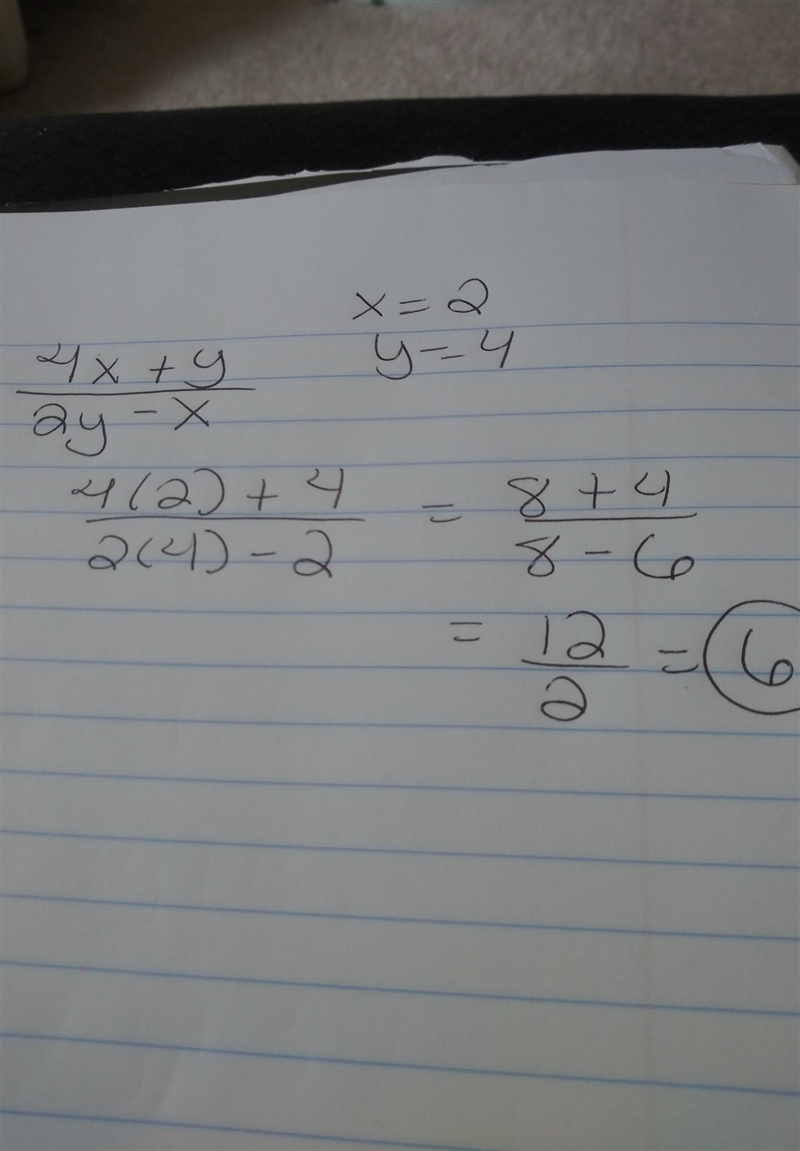 x = 2
y = 4
4x + y
2y - x
4(2) + 4 = 8 + 4
2(4) - 2   8 - 6
= 12 = 6
2